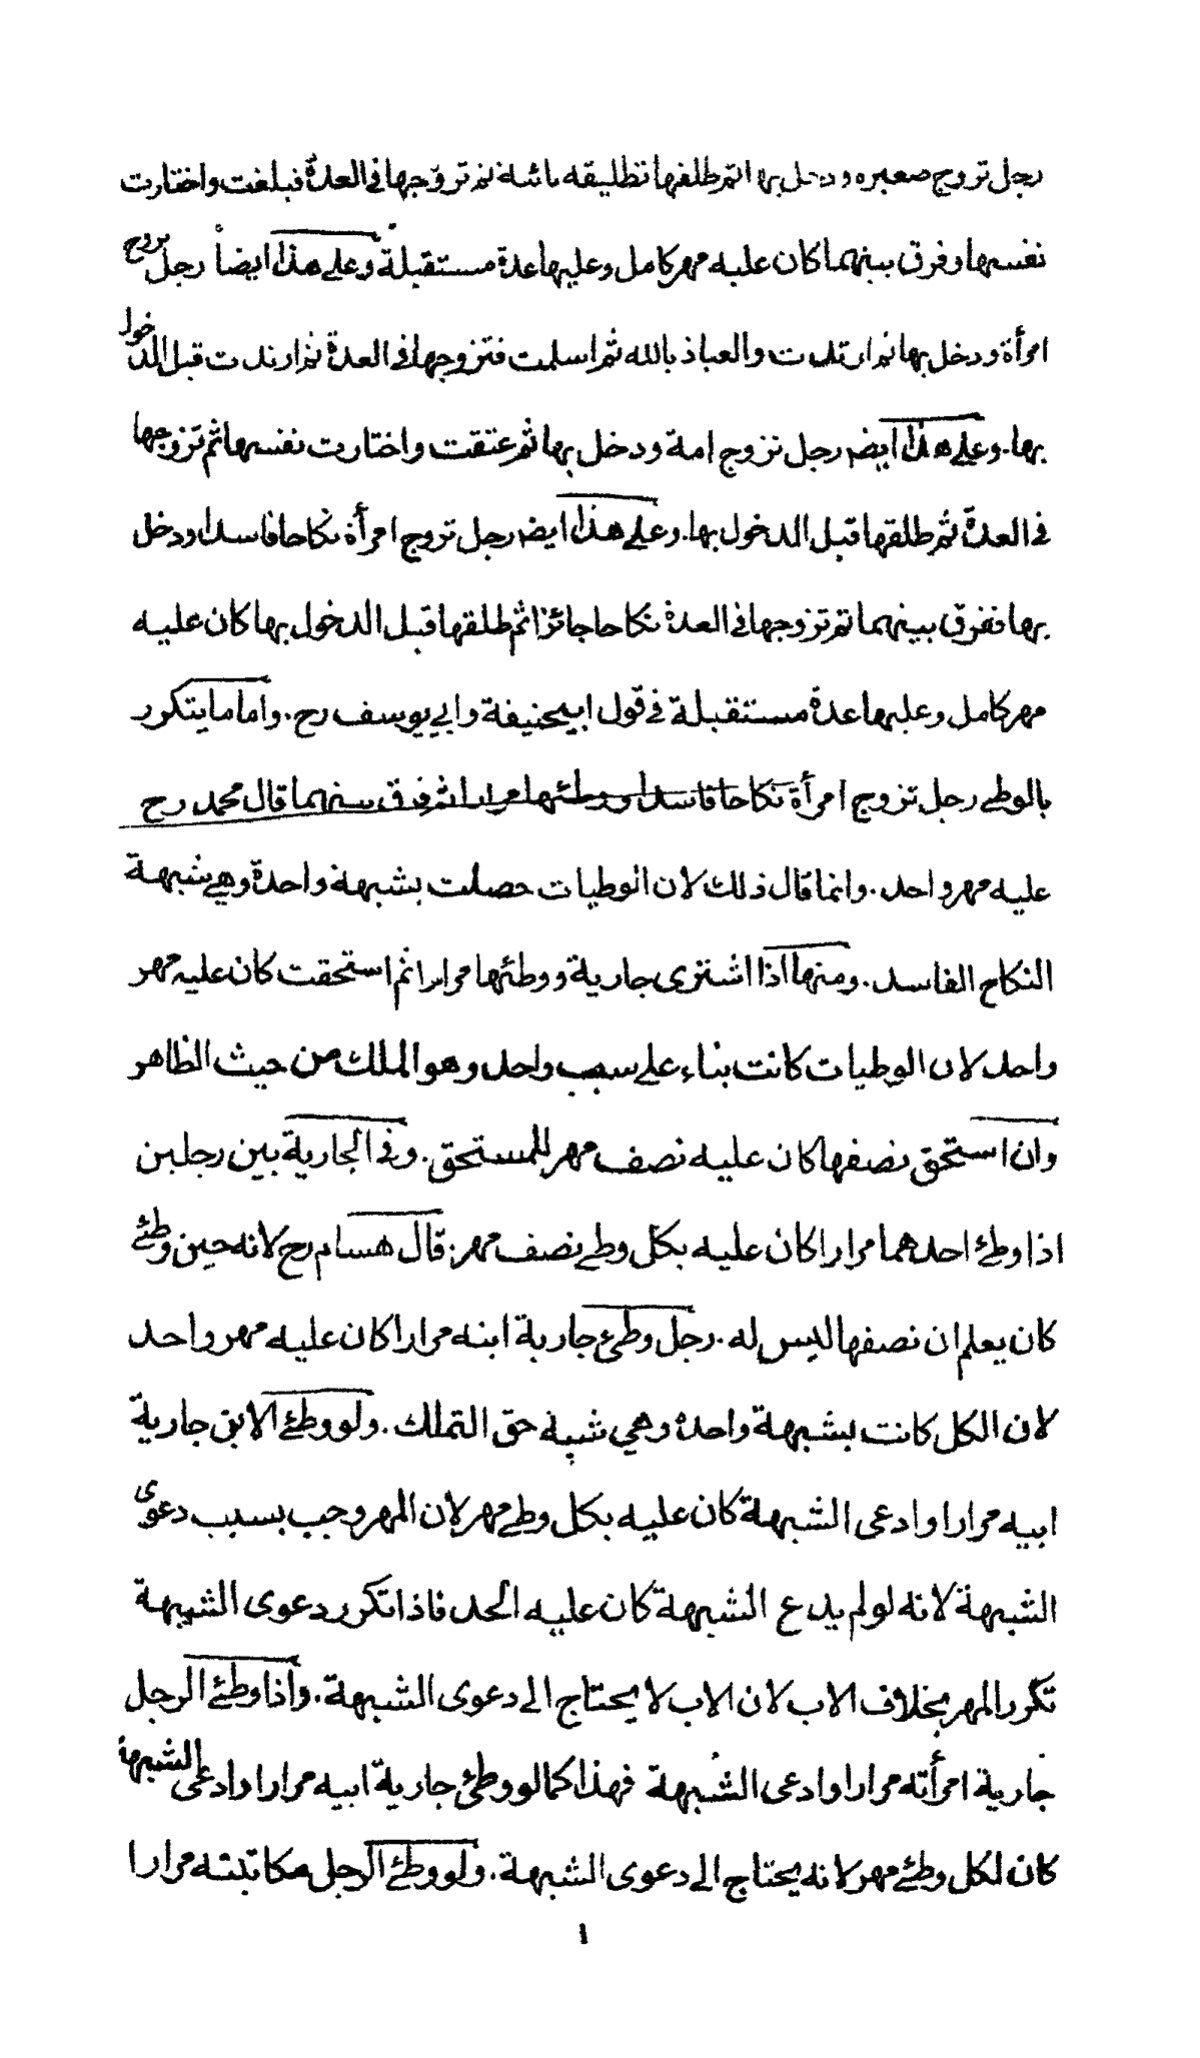 رجل تزوج صغيره ودخل بها ثم طلقها تطليقه بائنة ثم تزوجها فى العدة فبلغت واختارت
نفسها وفرق بينهما كان عليه مهر كامل وعليها عدة مستقبلة وعلى هذا ايضاً رجل تزوج
امرأة ودخل بها ثم ارتدت والعياذ بالله ثم اسلمت فتزوجها فى العدة ثم ارتدت قبل الدخول
بها. وعلى هذا ايضہ رجل تزوج امة ودخل بها ثم عتقت واختارت نفسها ثم تزوجها
فى العدة ثم طلقها قبل الدخول بها. وعلى هذا ايضہ رجل تزوج امرأة نكاحا فاسدا ودخل
بها ففرق بينهما ثم تزوجها فى العدة نكاحا جائزا ثم طلقها قبل الدخول بها كان عليه
مهر كامل وعليها عدة مستقبلة فى قول ابيحنيفة وابي يوسف رح. واما ما يتكرر
بالوطى رجل تزوج امرأة نكاحا فاسدا ووطئها مرارا ثم فرق بينهما قال محمد رح
عليه مهر واحد. وانما قال ذلك لان الوطيات حصلت بشبهة واحدة وهي شبهة
النكاح الفاسد. ومنها اذا اشترى جارية ووطئها مرارا ثم استحقت كان عليه مهر
واحد لان الوطيات كانت بناء على سبب واحد وهو الملك من حيث الظاهر
وان استحق نصفها كان عليه نصف مهر للمستحق. وفى الجارية بين رجلين
اذا وطئ احدهما مرارا كان عليه بكل وطى نصف مهر. قال هسام رح لانه حين وطئ
كان يعلم ان نصفها ليس له. رجل وطئ جارية ابنه مرارا كان عليه مهر واحد
لان الكل كانت بشبهة واحدة وهي شبهة حق التملك. ولو وطئ الابن جارية
ابيه مرارا وادعى الشبهة كان عليه بكل وطى مهر لان المهر وجب بسبب دعوى
الشبهة لانه لو لم يدع الشبهة كان عليه الحد فاذا تكرر دعوى الشبهة
تكرر المهر بخلاف الاب لان الاب لا يحتاج الى دعوى الشبهة. واذا وطئ الرجل
جارية امرأته مرارا وادعى الشبهة فهذا كما لو وطئ جارية ابيه مرارا وادعى الشبهة
كان لكل وطئ مهر لانه يحتاج الى دعوى الشبهة. ولو وطئ الرجل مكاتبته مرارا
١